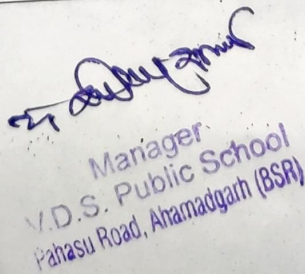 Manager
V.D.S. Public School
Pahasu Road, Ahamadgarh (BSR)